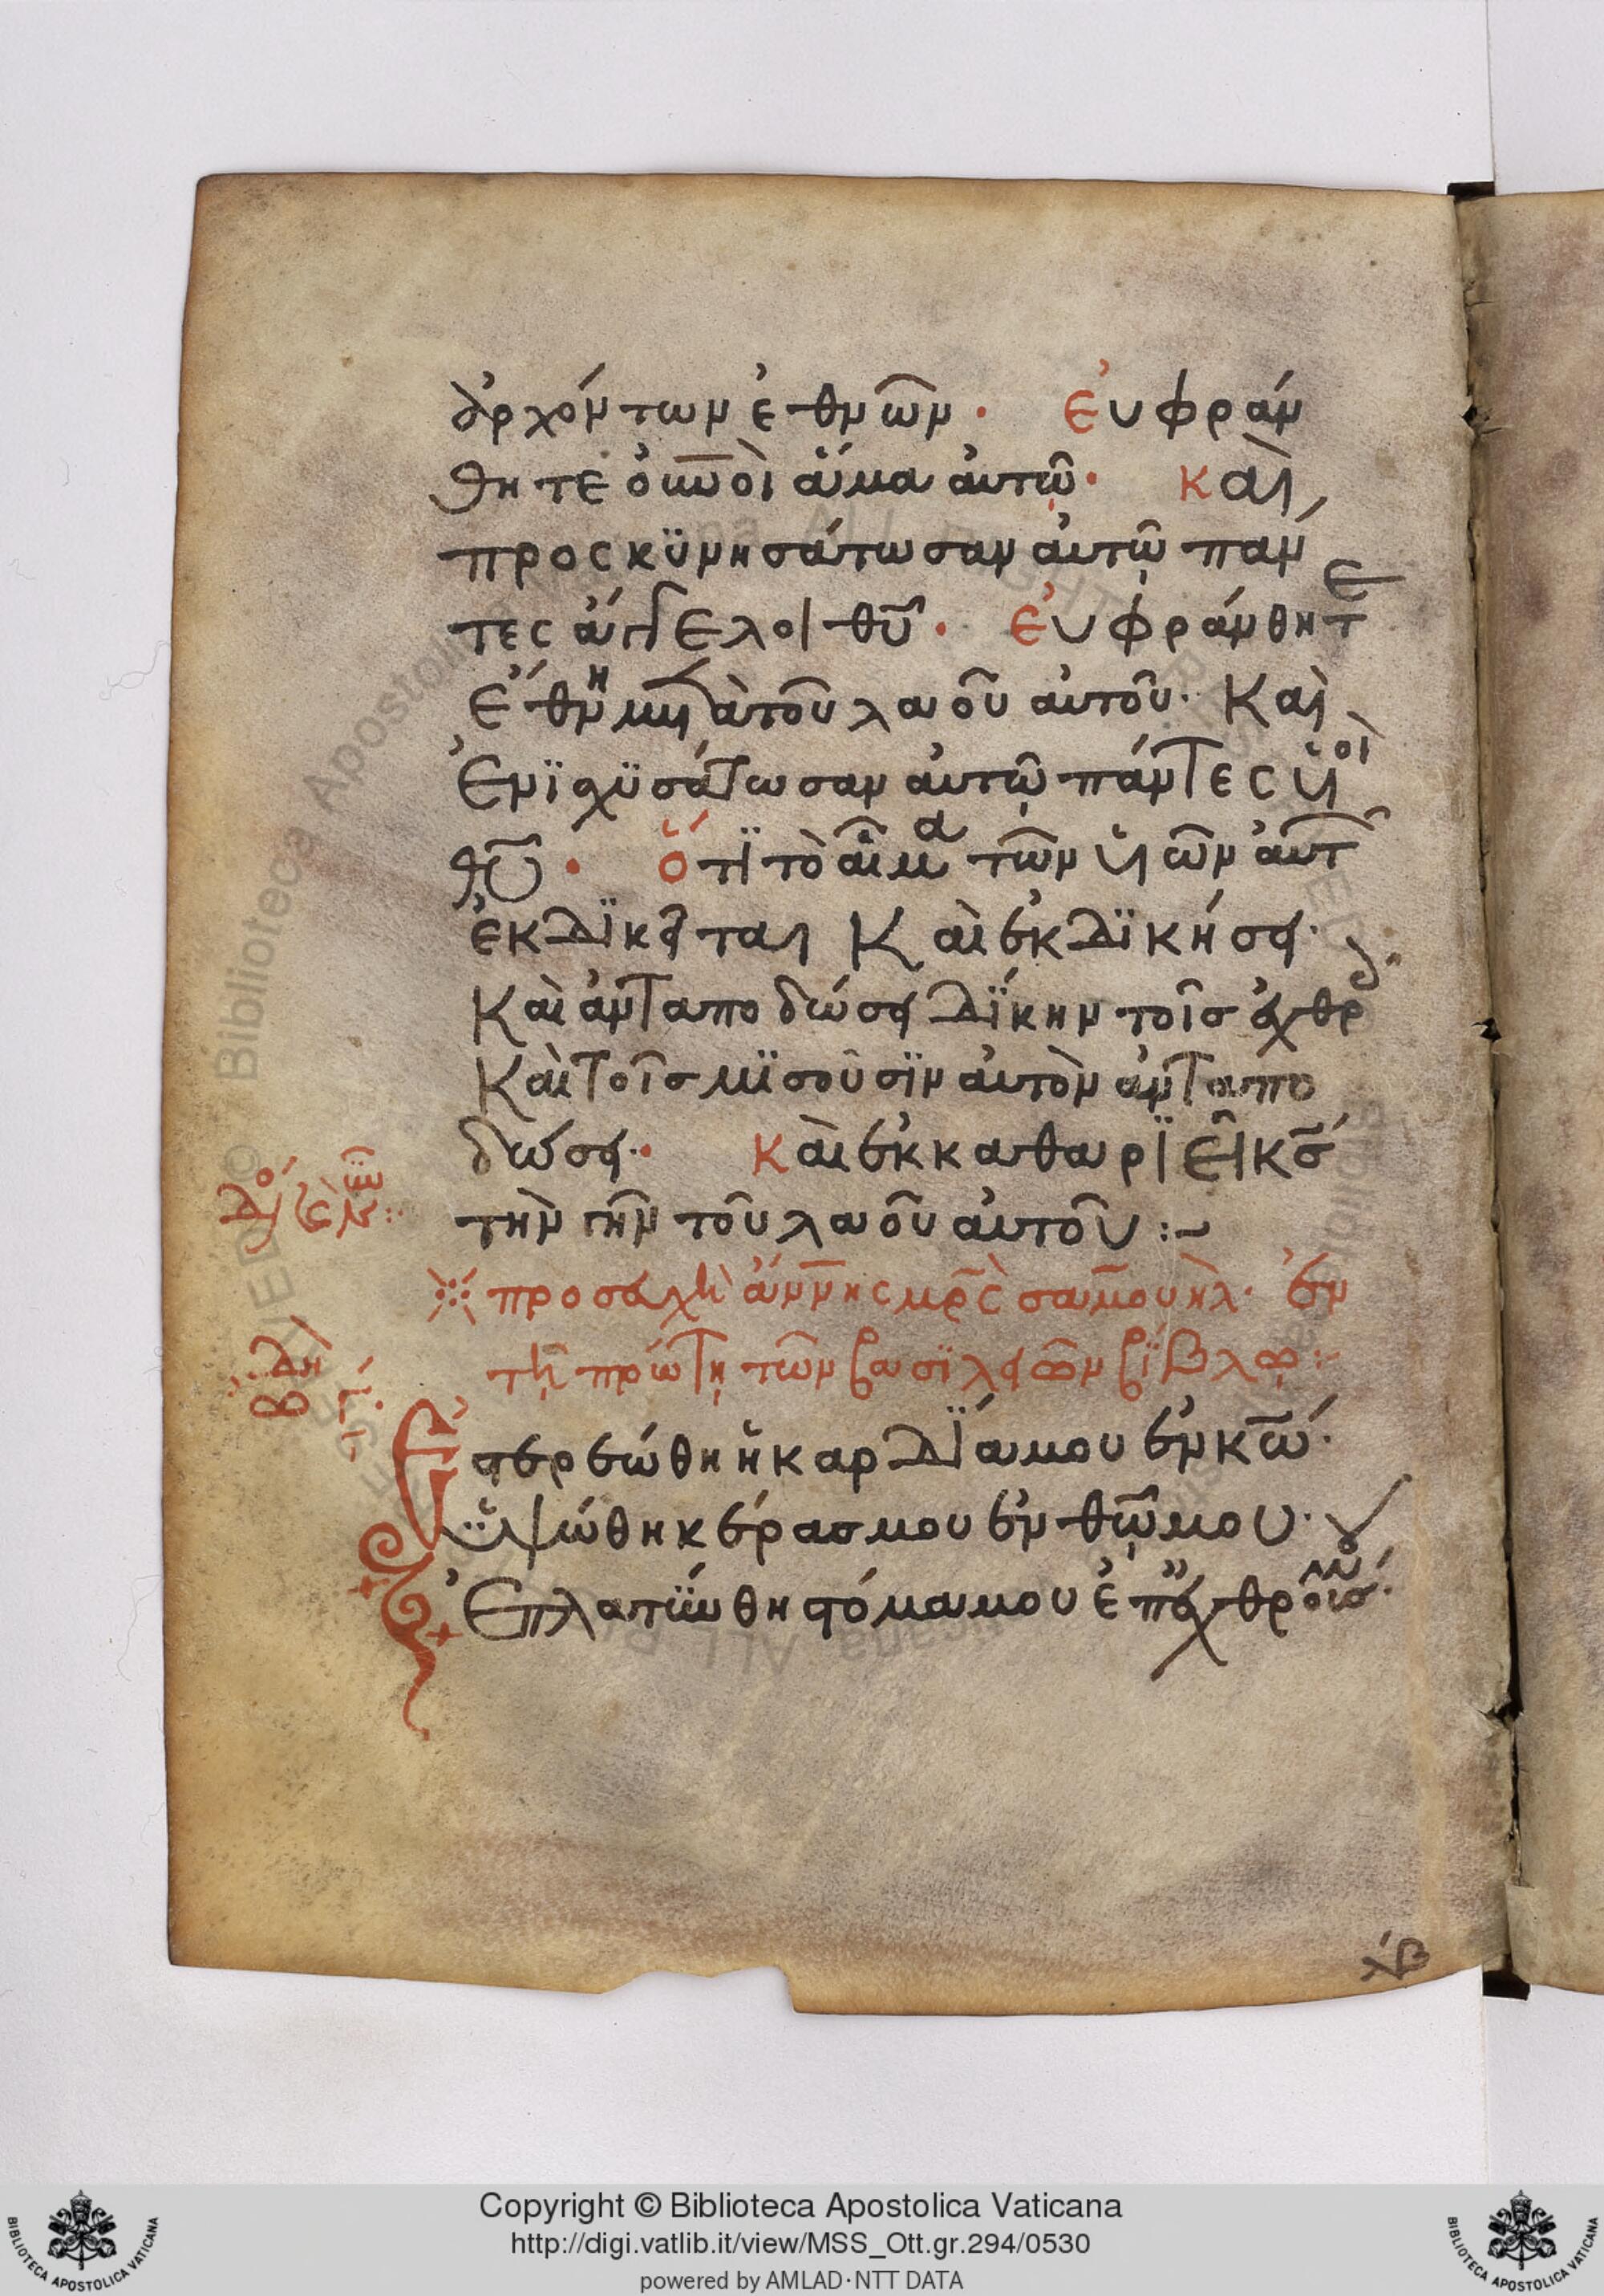 ἀρχόντων ἐθνῶν· εὐφράν
θητε οὐνοὶ ἅμα αὐτῶ· καὶ
προσκϋνησάτωσαν αὐτῶ πάν
τες ἄγγελοι θυ· εὐφράνθητε
ἔθνη μετὰ τοῦ λαοῦ αὐτοῦ· Καὶ
Ἐνϊσχϋσάτωσαν αὐτῶ πάντες ὑϊοὶ
θυ· ὅτϊ τὸ αἷμα τῶν ὑϊῶν αὐτ
ἐκδϊκεῖται Καὶ ἐκδϊκήσει·
Καὶ ἀνταποδώσει δΐκην τοῖσ ἐχθρ
Καὶ τοῖσ μϊσοῦσϊν αὐτὸν ἀνταπο
δώσει· καὶ ἐκκαθαριεῖ κσ
τὴν γῆν τοῦ λαοῦ αὐτοῦ :-
προσευχὴ ἄννης μρς σαμουήλ· ἐν
τῆ πρώτη τῶν βασϊλειῶν βΐβλω :-
Ἐστερεώθη ἡ καρδΐα μου ἐν κω·
ὑψώθη κέρασ μου ἐν θω μου·
Ἐπλατύνθη στόμα μου ἐπ' ἐχθροὺσ
χβ
Copyright © Biblioteca Apostolica Vaticana
http://digi.vatlib.it/view/MSS_Ott.gr.294/0530
powered by AMLAD·NTT DATA
BIBLIOTECA APOSTOLICA VATICANA
BIBLIOTECA APOSTOLICA VATICANA